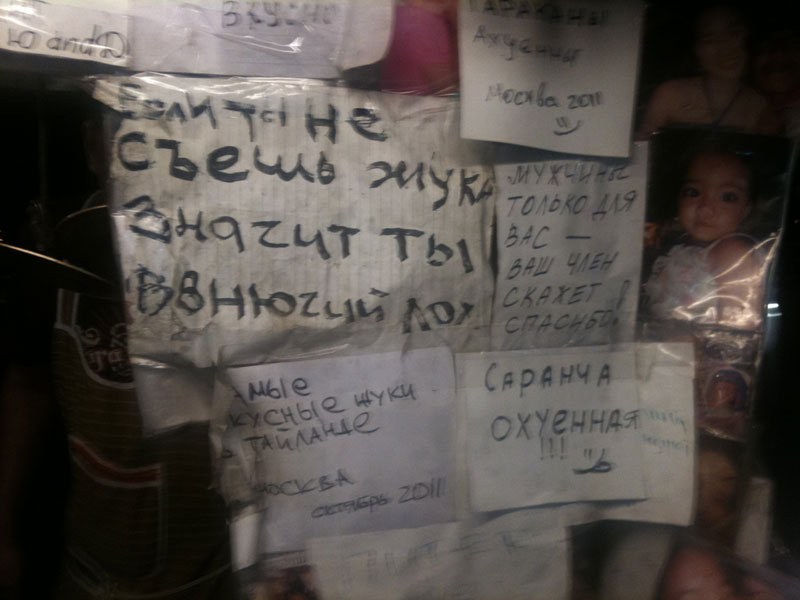 Ю and
ВКУСНО
ТАРАКАНЫ
АХУЕННЫ
Москва 2011
Если ты не
Съешь жука
Значит ты
Вонючий лох
МУЖЧИНЫ
ТОЛЬКО ДЛЯ
ВАС —
ВАШ ЧЛЕН
СКАЖЕТ
СПАСИБО!
МЫЕ
КУСНЫЕ ЖУКИ
В ТАЙЛАНДЕ
МОСКВА
ОКТЯБРЬ 2011
САРАНЧА
ОХУЕННАЯ
!!!